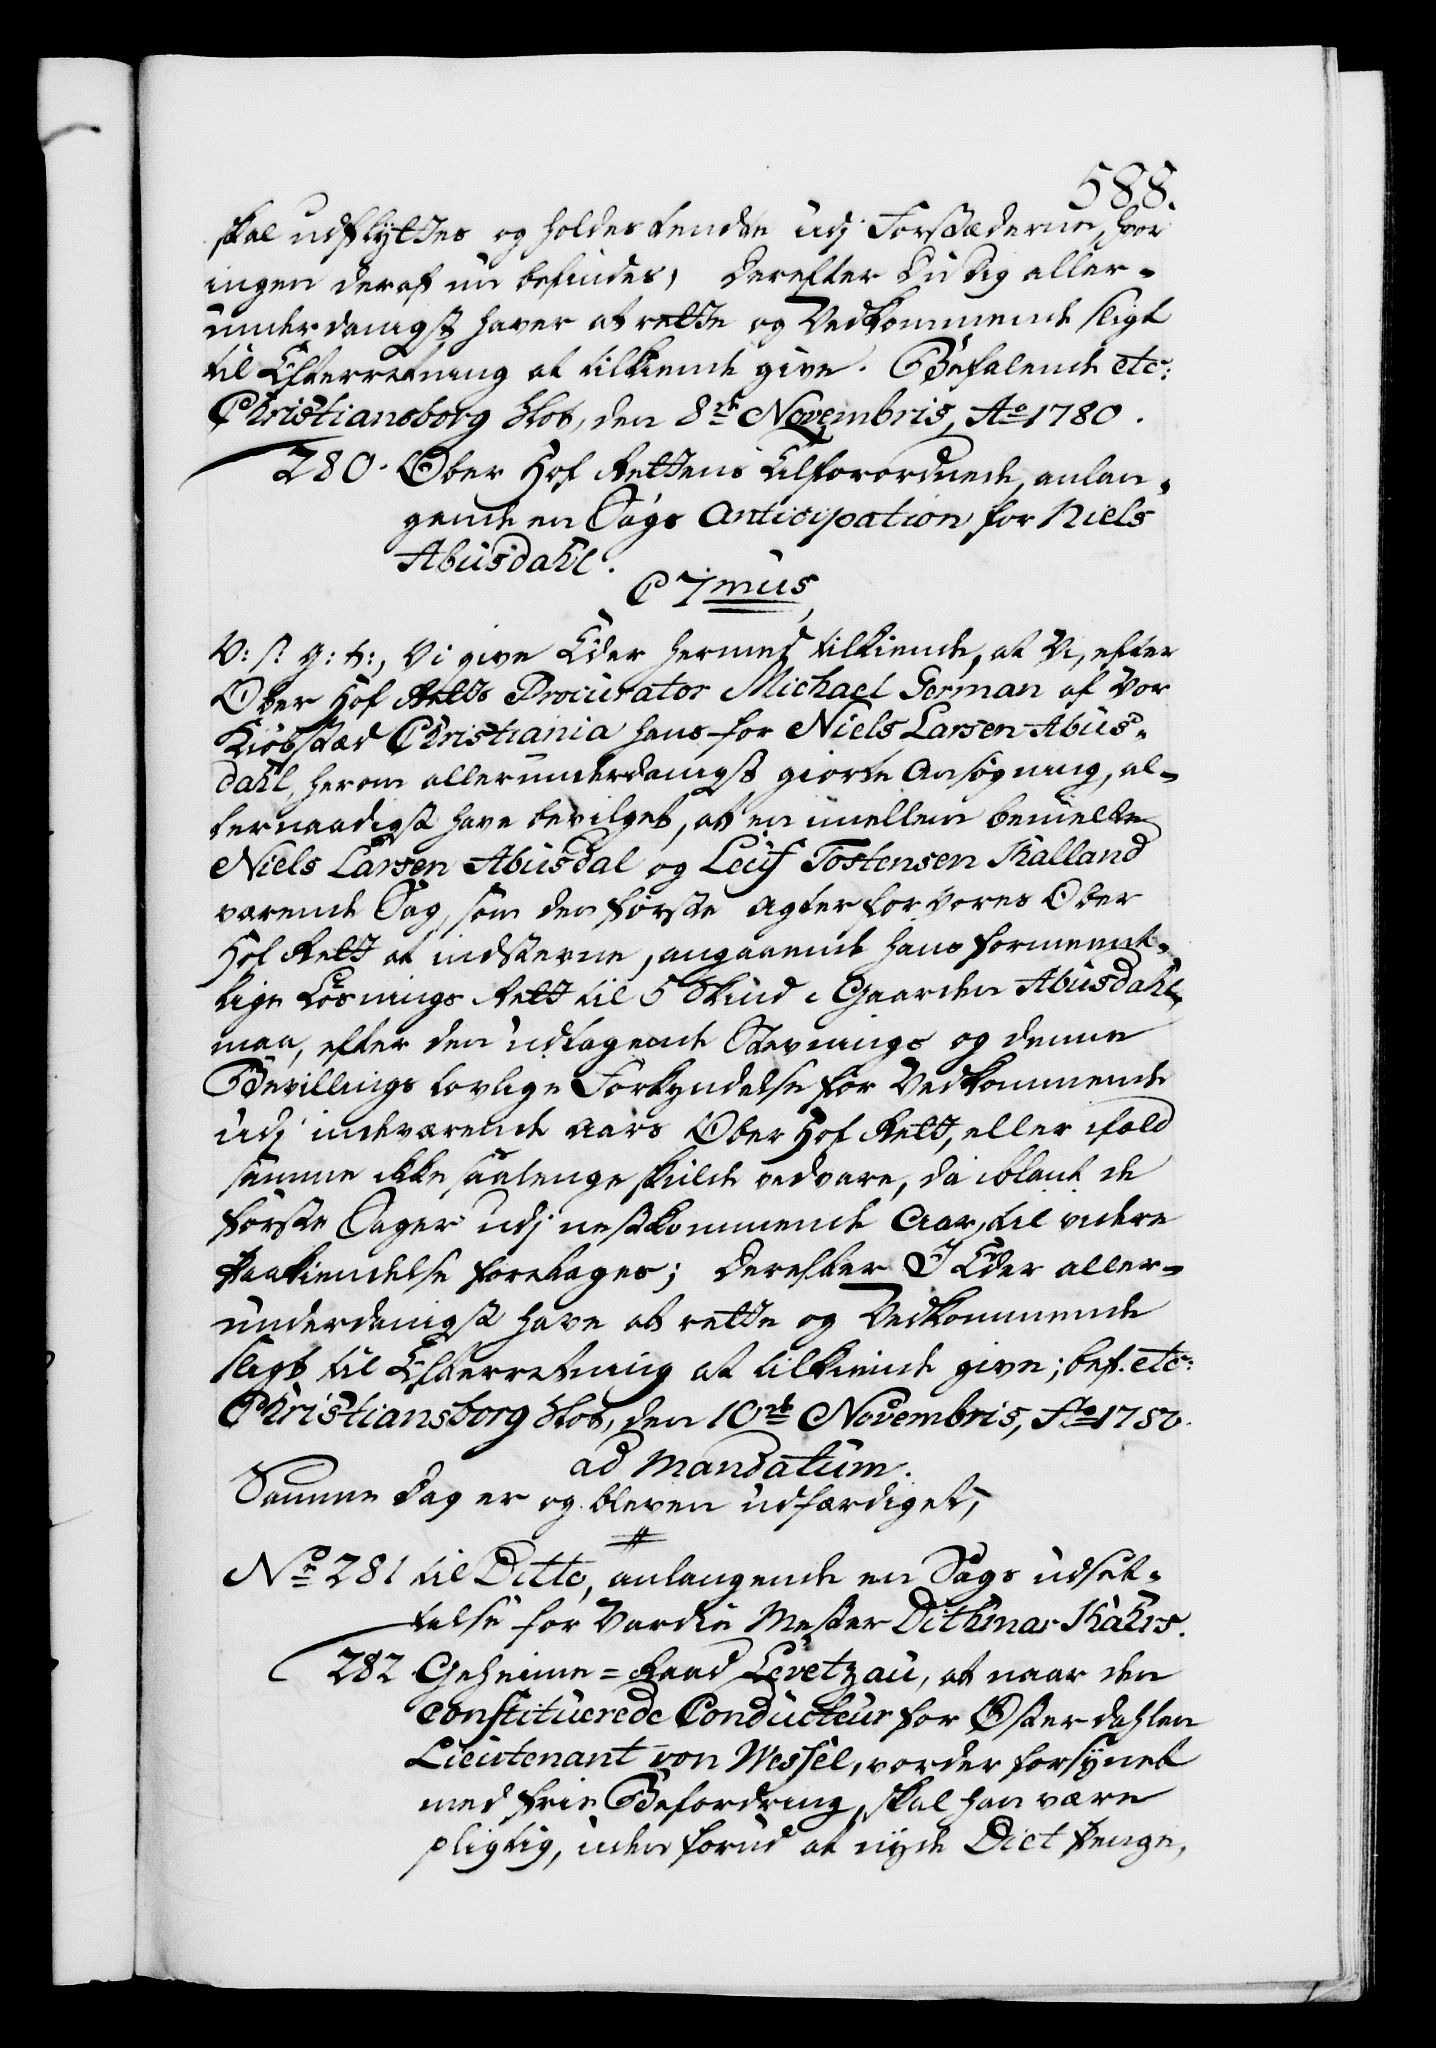 588.
skal udflyttes og holdes tendte udj Forstæderne, hvor
ingen deraf nu befindes; Derefter Du Dig aller-
underdanigst haver at rette og Vedkommende sligt
til Efterretning at tilkiende give. Befalende etc:
Christiansborg Slot, den 8de Novembris, Ao 1780.
280. Ober Hof Rettens Tilforordnede, anlan-
gende en Sags Anticipation for Niels
Abusdahl.
C 7mus,
V: S: G: T:, Vi give Eder hermed tilkiende, at Vi, efter
Ober Hof Retts Procurator Michael German af Vor
Kiøbstæd Christiania hans for Niels Larsen Abus-
dahl, herom allerunderdanigst giorte Ansøgning, al-
lernaadigst have bevilget, at en imellem bemelte
Niels Larsen Abusdal og Leuf Tostensen Kalland
værende Sag, som den første agter for Vores Ober
Hof Rett at indstevne, angaaende hans formeent-
lige Løsnings Rett til 5 Skind i Gaarden Abusdahl,
maa, efter den udtagende Stevnings og denne
Bevillings lovlige Forkyndelse for Vedkommende
udj indeværende Aars Ober Hof Rett, eller ifald
samme ikke saalenge skulde vedvare, da iblant de
første Sager udj nestkommende Aar, til videre
Paakiendelse foretages; Derefter I Eder aller-
underdanigst have at rette og Vedkommende
sligt til Efterretning at tilkiende give; bef. etc:
Christiansborg Slot, den 10de Novembris, Ao 1780.
ad Mandatum.
Samme Dag er og bleven udfærdiget,
No 281 til Ditto, anlangende en Sags udsæt-
telse for Vardin Mester Dithmar Kahrs.
282 Geheime-Raad Levetzau, at naar den
Constituerede Conducteur for Østerdahlen
Lieutenant von Wessel, vorder forsynet
med frie Befordring, skal han være
pligtig, uden forud at nyde Diet Penge,